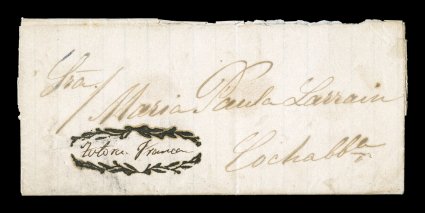 Sra.
Maria Paula Larrain
Cochabba
Totora. Franca